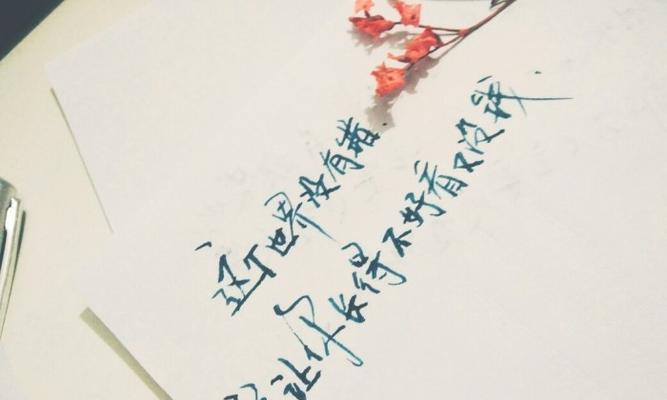 这个世界没有错
让你长得不好看又没钱